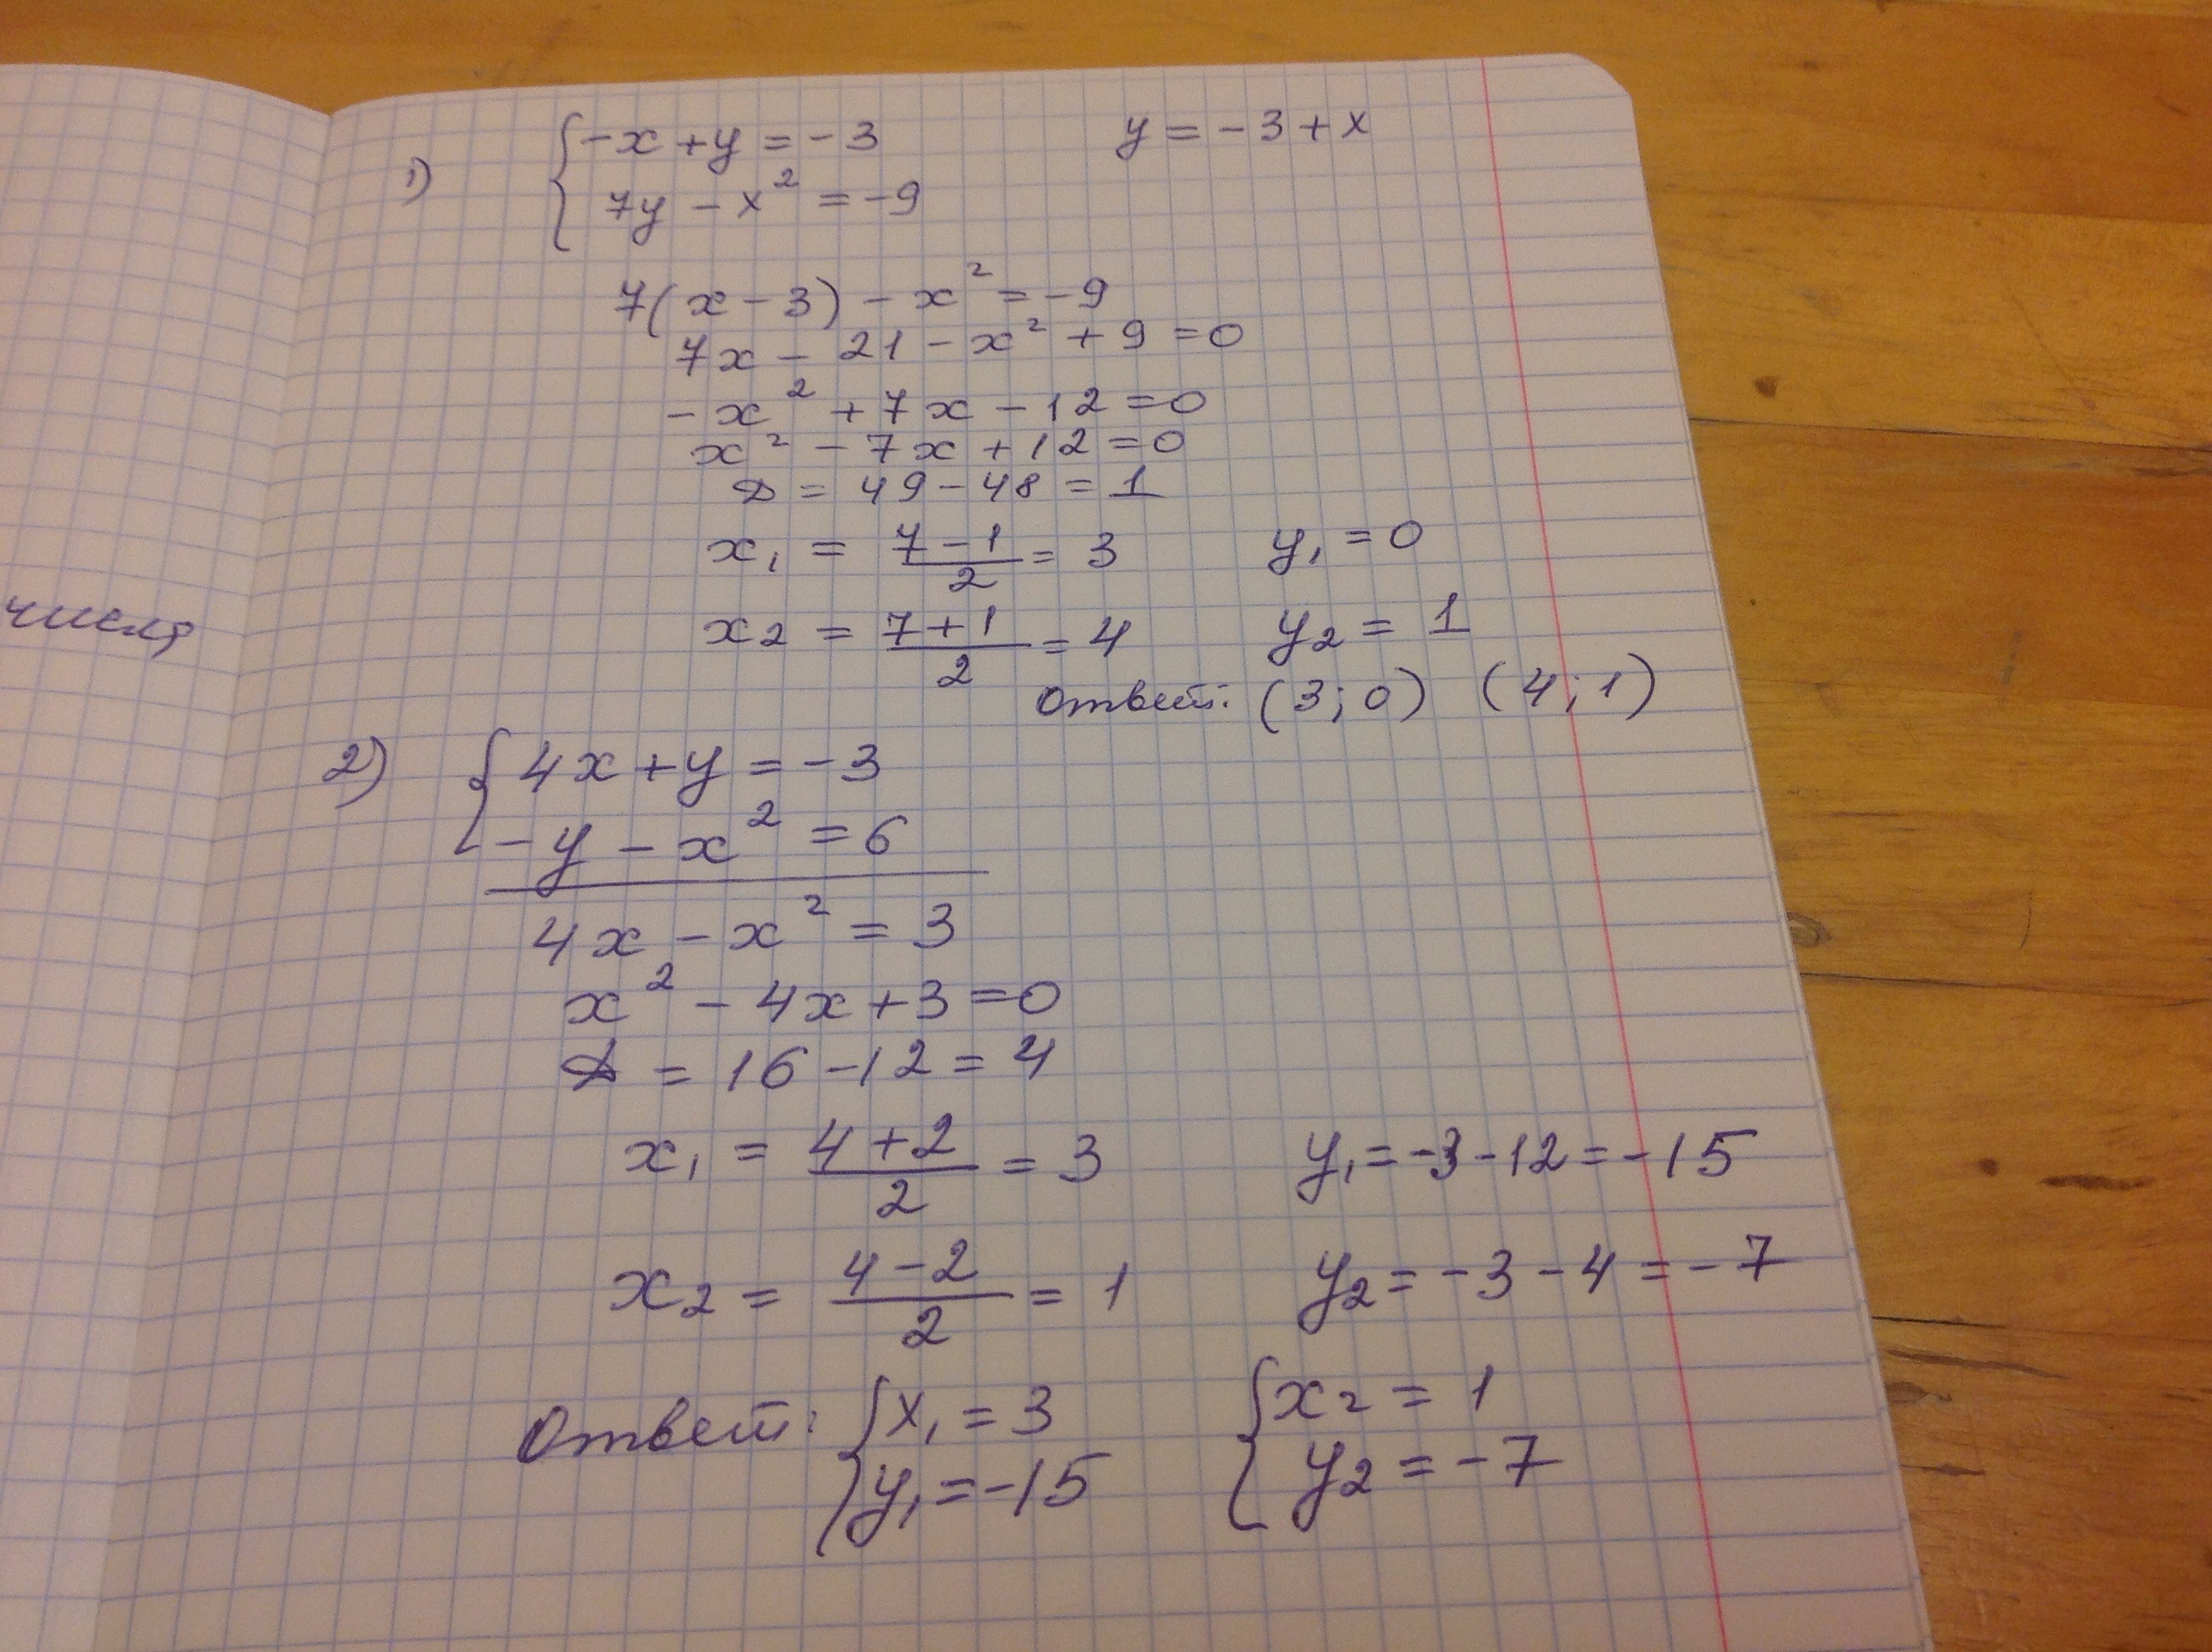 1) { -x + y = -3      y = -3 + x
7y - x² = -9
7(x - 3) - x² = -9
7x - 21 - x² + 9 = 0
-x² + 7x - 12 = 0
x² - 7x + 12 = 0
D = 49 - 48 = 1
x₁ = (7 - 1)/2 = 3      y₁ = 0
числа
x₂ = (7 + 1)/2 = 4      y₂ = 1
Ответ: (3; 0) (4; 1)
2) { 4x + y = -3
-y - x² = 6
4x - x² = 3
x² - 4x + 3 = 0
D = 16 - 12 = 4
x₁ = (4 + 2)/2 = 3      y₁ = -3 - 12 = -15
x₂ = (4 - 2)/2 = 1      y₂ = -3 - 4 = -7
Ответ: { x₁ = 3      { x₂ = 1
y₁ = -15      y₂ = -7